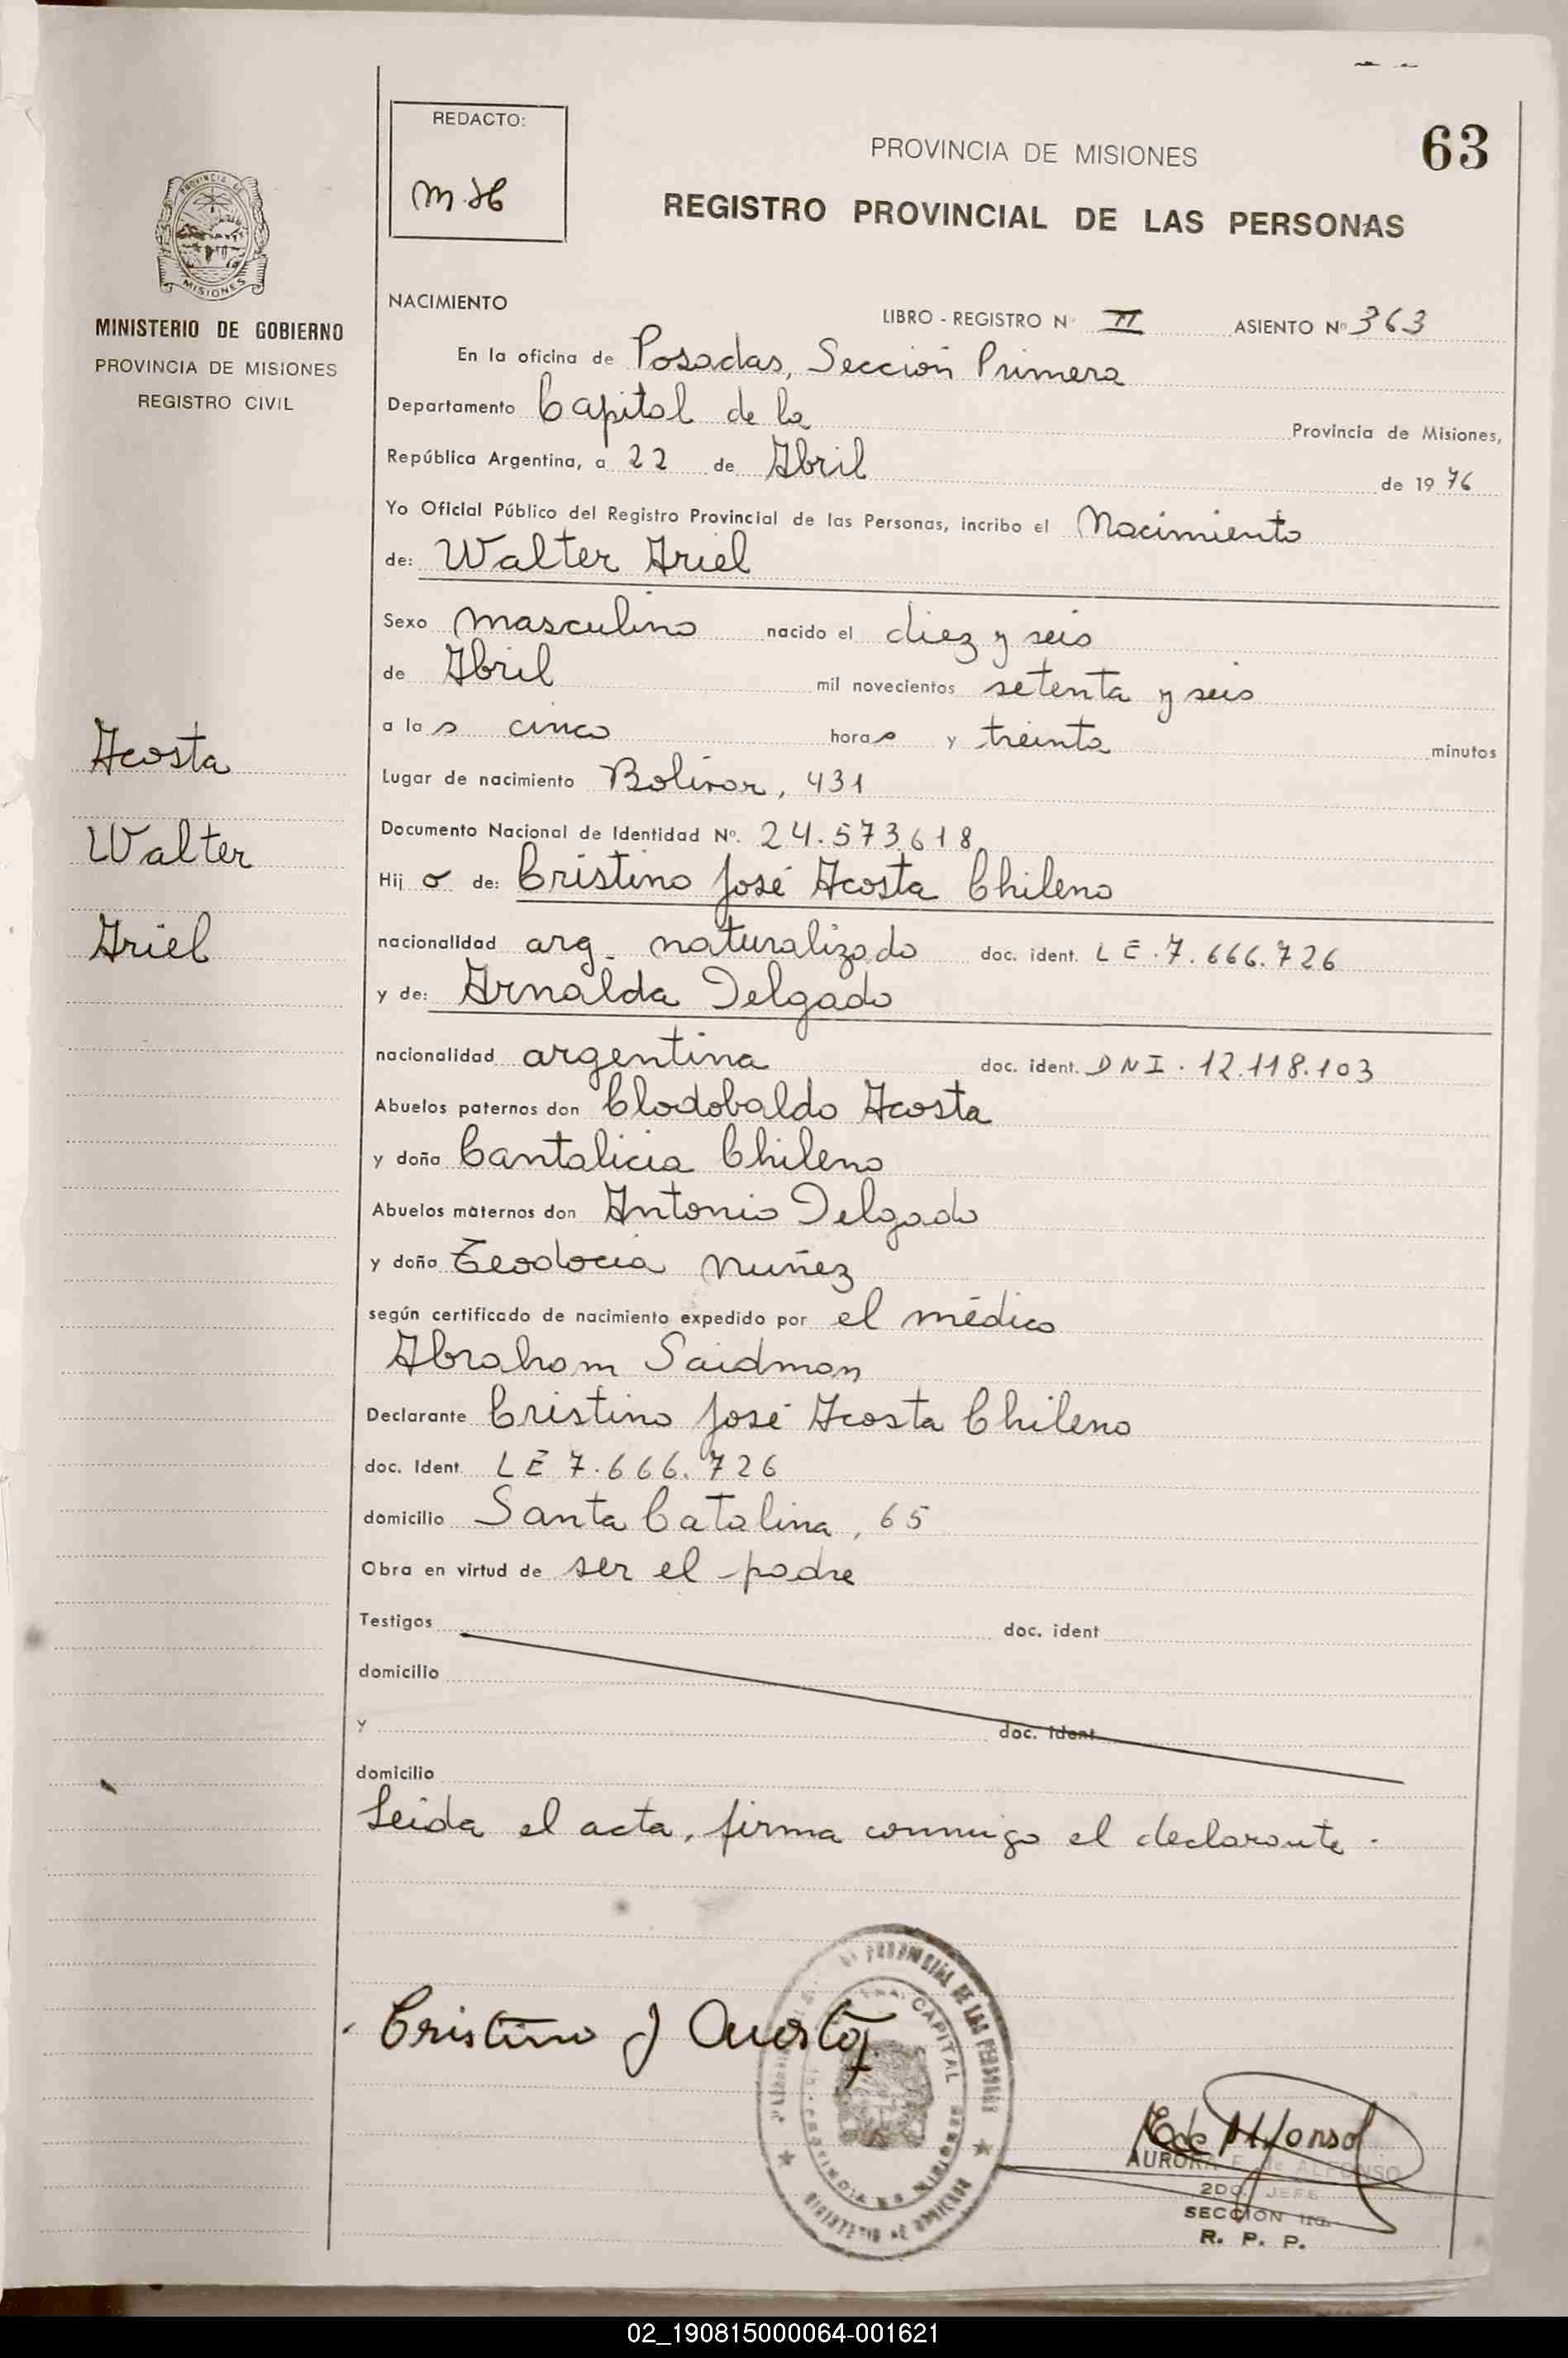 REDACTO:
M.H
PROVINCIA DE MISIONES
63
REGISTRO PROVINCIAL DE LAS PERSONAS
PROVINCIA DE
MISIONES
MINISTERIO DE GOBIERNO
PROVINCIA DE MISIONES
REGISTRO CIVIL
NACIMIENTO
LIBRO - REGISTRO Nº II ASIENTO Nº 363
En la oficina de Posadas, Sección Primera
Departamento Capital de la Provincia de Misiones,
República Argentina, a 22 de Abril de 1976
Yo Oficial Público del Registro Provincial de las Personas, incribo el Nacimiento
de: Walter Ariel
Sexo masculino nacido el diez y seis
de Abril mil novecientos setenta y seis
a las cinco horas y treinta minutos
Lugar de nacimiento Bolívar, 431
Documento Nacional de Identidad Nº. 24.573.618
Hijo de: Cristino José Acosta Chileno
nacionalidad arg. naturalizado doc. ident. LE.7.666.726
y de: Arnalda Delgado
nacionalidad argentina doc. ident. DNI.12.118.103
Abuelos paternos don Clodobaldo Acosta
y doña Cantalicia Chileno
Abuelos maternos don Antonio Delgado
y doña Teodocia Nuñez
según certificado de nacimiento expedido por el médico
Abraham Saidman
Declarante Cristino José Acosta Chileno
doc. Ident. LE 7.666.726
domicilio Santa Catalina, 65
Obra en virtud de ser el padre
Testigos doc. ident
domicilio
y doc. ident
domicilio
Leida el acta, firma conmigo el declarante.
Acosta
Walter
Ariel
Cristino J Acosta
PROVINCIAL DE LAS PERSONAS
CAPITAL
MINISTERIO DE GOBIERNO
E de Alfonso
AURORA E. de ALFONSO
2DO. JEFE
SECCION 1ra.
R. P. P.
02_190815000064-001621